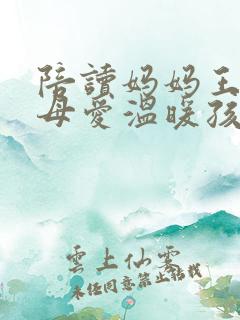 陪讀妈妈王
母爱温暖孩
雲上仙雾
未经同意禁止转载